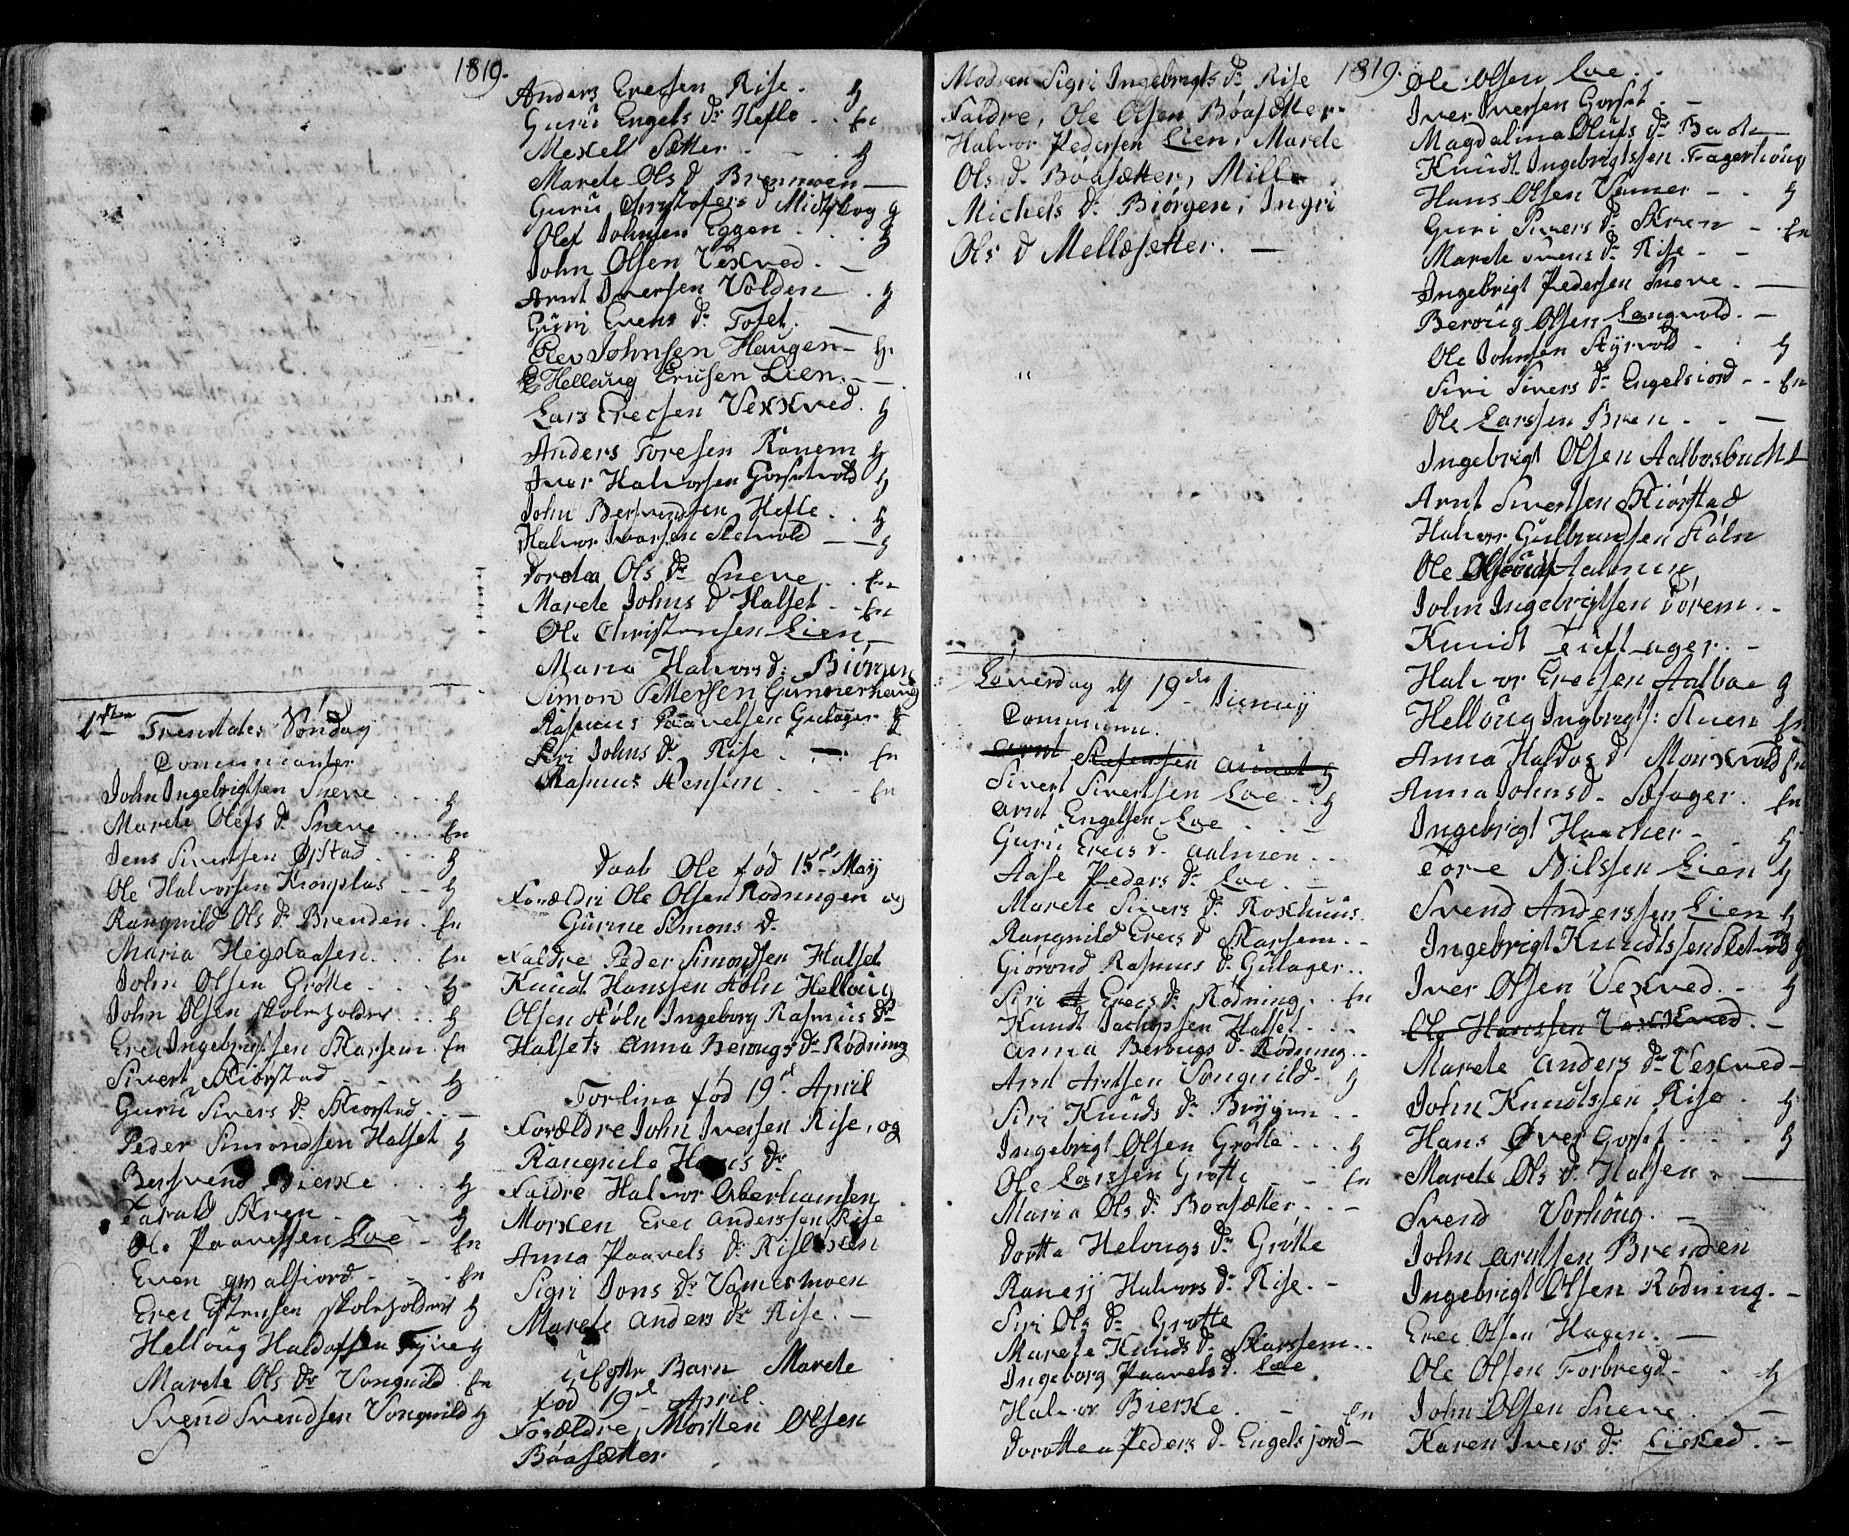 1819.
1ste Trenitates Søndag
Communicanter
John Ingebrigtsen Sneve . . . g
Marete Olefs Dr. Sneve . . . En
Jens Siversen Ørstad . . . g
Ole Halvorsen Kronplas - - g
Rangnild Ols Dr. Brenden . En
Maria Hegstaasen . . . En
John Olsen Grøtte . . . g
John Olsen skoleholder . . . g
Erec Ingebrigtsen Skarsem . En
Sivert Skiørstad - g
Guru Sivers Dr. Skiorstad . . -
Peder Simondsen Halset g
Bersvend Bierke . . . g
Skren - g
Ole Paavelsen Loe - En
Even - - . En
Erec Estensen skoleholder g
Helloug Haldossen g
Marete Ols Dr. Vongnild . En
Svend Svendsen Vongnild g
S
Anders Erecsen Rise . g
Guru Engels Dr. Hefle . . En
Mexell Sætter . - . g
Marete Ols D Brennmoen -
Guru Christofers D g
Olef Johnsen Eggen . . . g
John Olsen Vexved . -
Arnt Iversen Volden . g
Guri Evens Dr. Tofet . -
Elev Johnsen Haugen - g.
Helloug Ericsen Lien . - -
Lars Erecsen Vexkved . g
Anders Toresen Ranem g
Iver Halvorsen Gorsetvold g
John Bersvendsen Hefle . . g
Halvor Ivarsen Sletvold - - g
Dorotea Ols Dr Sneve . . En
Marete Johns D Halset - - En
Ole Christensen Lien -
Maria Halvors D: Biørgen
Simon Pettersen Gunnerhaug
Rasmus Paavelsen Gulager g
Siri Johns Dr. Rise . - . En
Rasmus Hensem . . - En
Daab Ole fød 15de May
Forældre Ole Olsen Rodningen og
Gurine Simons D.
Faldre Peder Simondsen Halset
Knudt Hanssen Holn Helloug
Olsen Høln Ingeborg Rasmus Dr
Halsets Anna Berougs Dr Rødning
Torlina fød 19d April
Forældre John Iversen Rise, og
Rangnile Hans Dr
Faldre Halvor Oberhamsen
Morken Erec Anderssen Rise
Anna Paavels Dr.
Sigri Jons Dr Vamesmoen
Marete Anders Dr Rise . -
Uægte Barn Marete
fød 19d April.
Forældre, Morten Olsen
Bøasætter
Modren Sigri Ingebrigts Dr. Rise
Faldre, Ole Olsen Bøasætter.
Halvor Pedersen Lien, Marete
Ols D. Bøasætter, Mille
Michels D. Biørgen, Ingri
Ols D Mellosætter. -
1819.
Løverdag d 19de Juny
Commun.
Sivert Sivertsen Loe . . g
Arnt Engelsen Loe . . -
Guru Erecs D. Aalmen . .
Aase Peders Dr. Loe . -
Marete Sivers Dr. Roxhuus.
Rangnild Erecs D Skarsem . .
Giørond Rasmus D. Gulager . .
Siri Erecs Dr. Rødning . . En
Knudt Jachopsen Halset . . .
Anna Berougs D. Rødning . .
Arnt Arntsen Vongnild - g
Siri Knuds Dr. Bryggen . .
Ingebrigt Olsen Grøtte . . . g
Ole Larssen Grøtte - - En
Maria Ols. Dr. Boasætter . . -
Dortte Helougs Dr. Grøtte
Ranei Halvors Dr. Rise . -
Siri Ols Dr. Grøtte
Marete Knuds Dr. Skarssem . .
Ingeborg Paavels D. Loe .
Halvor Bierke . - En
Dorottea Peders D. Engelsjord -
Ole Olsen Loe . .
Iver Iversen Gorset . -
Magdalina Olufs Dr. -
Knudt Ingebrigtssen Fagerhoug
Hans Olsen Vamer - . g
Guri Sivers Dr. Skren - . En
Marete Svens Dr. Rise . -
Ingebrigt Pedersen Sneve . -
Beroug Olsen Langvold . -
Ole Johnsen Styrvold . . g
Siri Sivers Dr. Engelsiord - - En
Ole Larssen Bren . . -
Ingebrigt Olsen Aalbosbucht
Arnt Siversen Skiørstad
Halvor Gulbrandsen Høln
Ole Aalmen
John Ingebrigtsen Dørem . .
Knudt Luftager . -
Halvor Erecsen Aalboe g
Helloug Ingbrigts: Stuen En
Anna Haldos D Monxvold En
Anna Johns D. Sæsager . En
Ingebrigt Haacker - g
Tore Nilssen Lien g
Svend Anderssen Lien g
Ingebrigt Knudtssen Sletvold g
Iver Olsen Vexved . - g
Ole Hanssen Vexkved . -
Marete Anders Dr Vexved -
John Knudtssen Rise . g
Hans Øver Gorset . . . g
Marete Ols D. Halsen . -
Svend Vorhoug . -
John Arntsen Brenden
Ingebrigt Olsen Rødning . -
Erec Olsen Hagen . -
Ole Olsen Forbregd - . g
John Olsen Sneve . -
Karen Ivers Dr . -